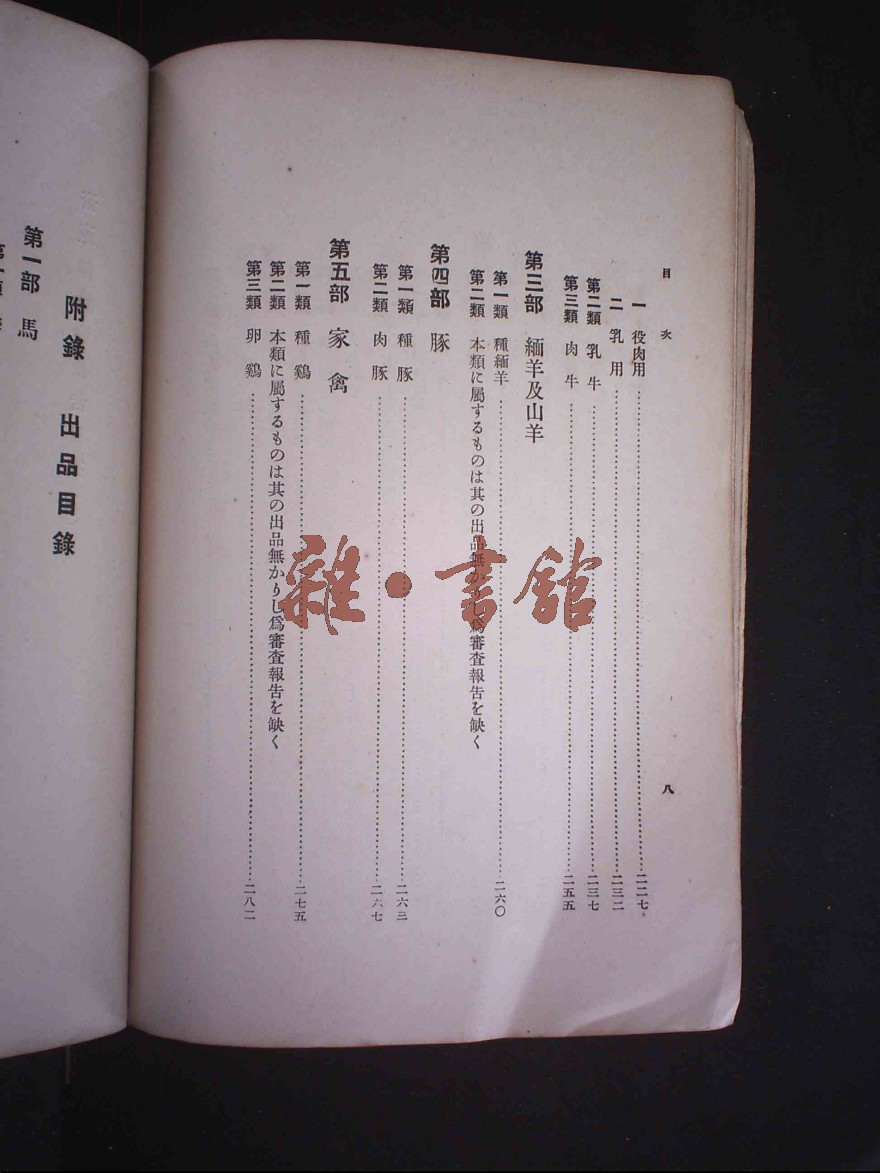 目次
八
一 役肉用……二二七
二 乳用……二三二
第二類 乳牛……二三七
第三類 肉牛……二五五
第三部 緬羊及山羊
第一類 種緬羊……二六〇
第二類 本類に屬するものは其の出品無かりし爲審査報告を缺く
第四部 豚
第一類 種豚……二六三
第二類 肉豚……二六七
第五部 家禽
第一類 種鷄……二七五
第二類 本類に屬するものは其の出品無かりし爲審査報告を缺く
第三類 卵鷄……二八二
附錄 出品目錄
第一部 馬
雜·書館